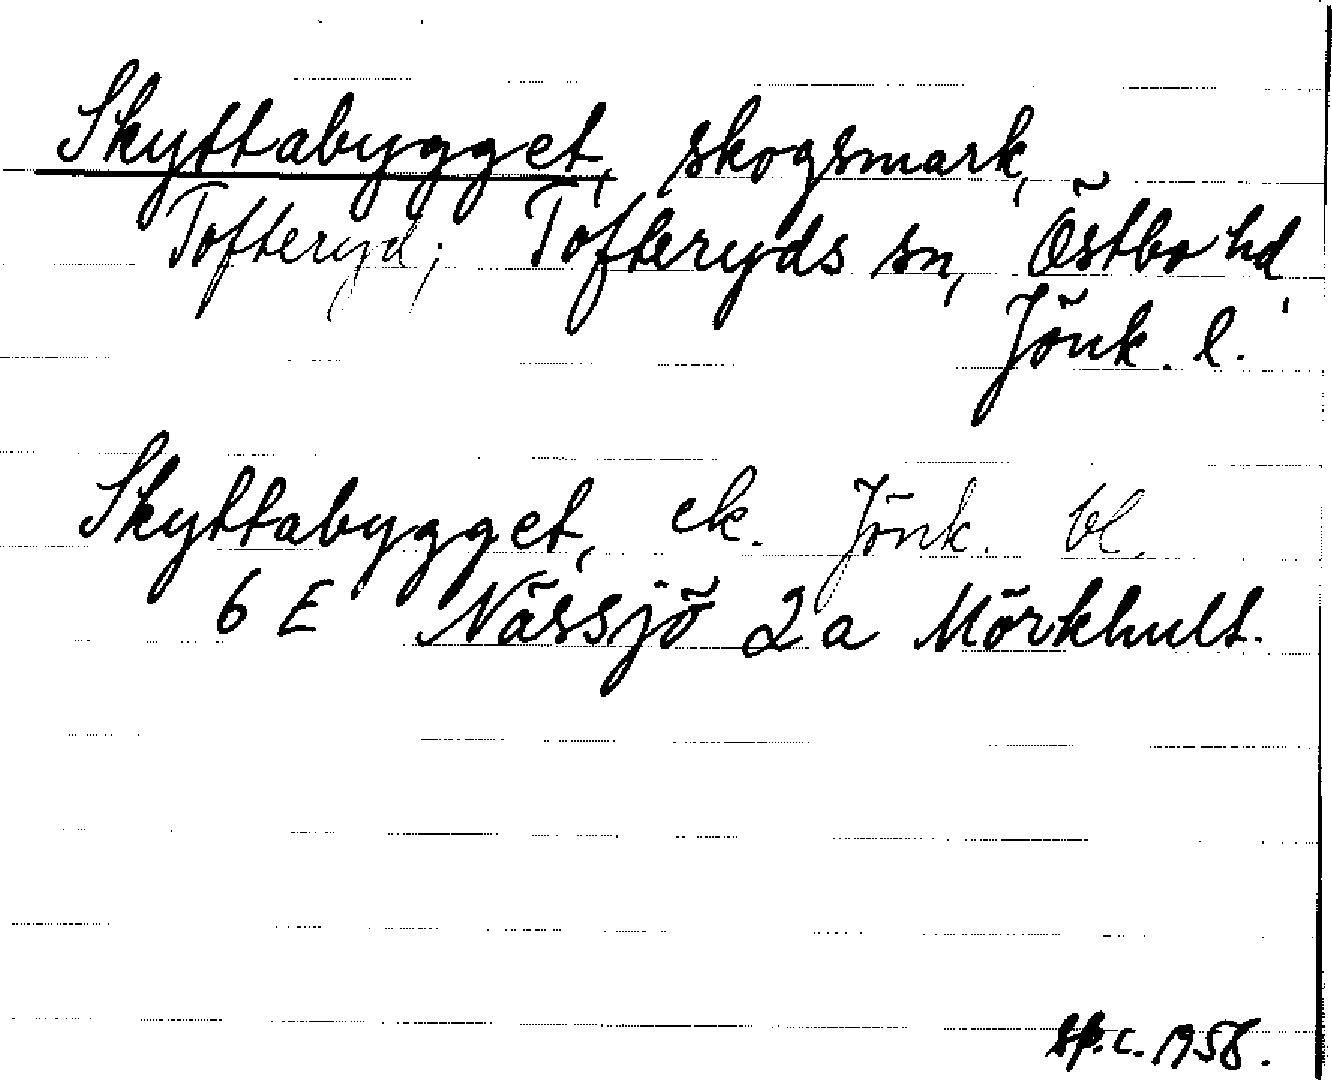 Skyttabygget, skogsmark,
Tofteryd; Tofteryds sn, Östbo hd,
Jönk. l.
Skyttabygget, ek. Jönk. bl.
6 E Nässjö 2a Mörkhult.
sp.c. 1958.